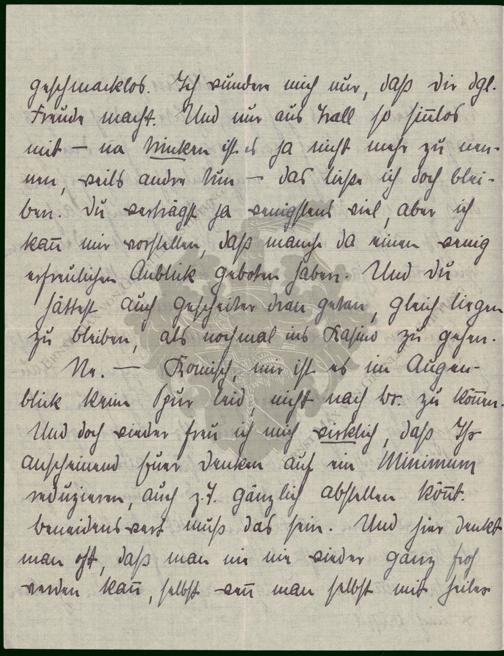 geschmacklos. Ich wundere mich nur, daß dir dgl.
Freude macht. Und nur aus so sinnlos
mit – na Trinken ist es ja nicht mehr zu nen-
nen, weils andre tun – das ließe ich doch blei-
ben. Du verträgst ja wenigstens viel, aber ich
kann mir vorstellen, daß manche da einen wenig
erfreulichen Anblick geboten haben. Und du
hättest auch gescheiter dran getan, gleich liegen
zu bleiben, als nochmal ins Kasino zu gehen.
Na. – Komisch, mir ist es im Augen-
blick keine Spur leid, nicht nach Br. zu können.
Und doch wieder freu ich mich wirklich, daß Ihr
anscheinend Euer Denken auf ein Minimum
reduzieren, auch z.T. gänzlich abstellen könnt.
beneidenswert muß das sein. Und hier denkt
man oft, daß man nie nie wieder ganz froh
werden kann, selbst wenn man selbst mit heiler